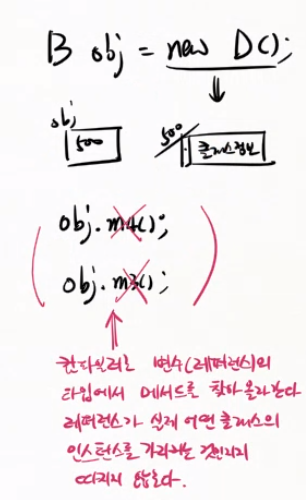 B obj = new D();
obj
500
500
클래스정보
obj.m4();
obj.m3();
컴파일러는 변수(레퍼런스)의
타입에서 메서드를 찾아 올라간다
레퍼런스가 실제 어떤 클래스의
인스턴스를 가리키는 것인지
따지지 않는다.